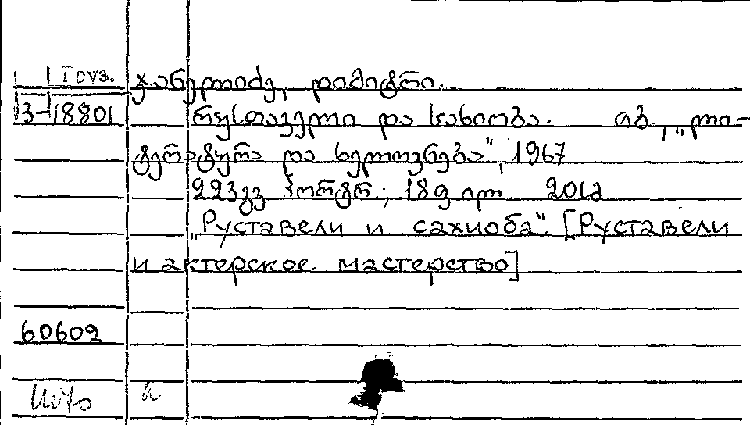 Груз. ჯანელიძე, დიმიტრი.
3-18801 რუსთაველი და სახიობა. თბ., „ლი-
ტერატურა და ხელოვნება“, 1967
223გვ პორტრ.; 18 ილ 20სმ
„Руставели и сахиоба“. [Руставели
и актерское мастерство]
60602